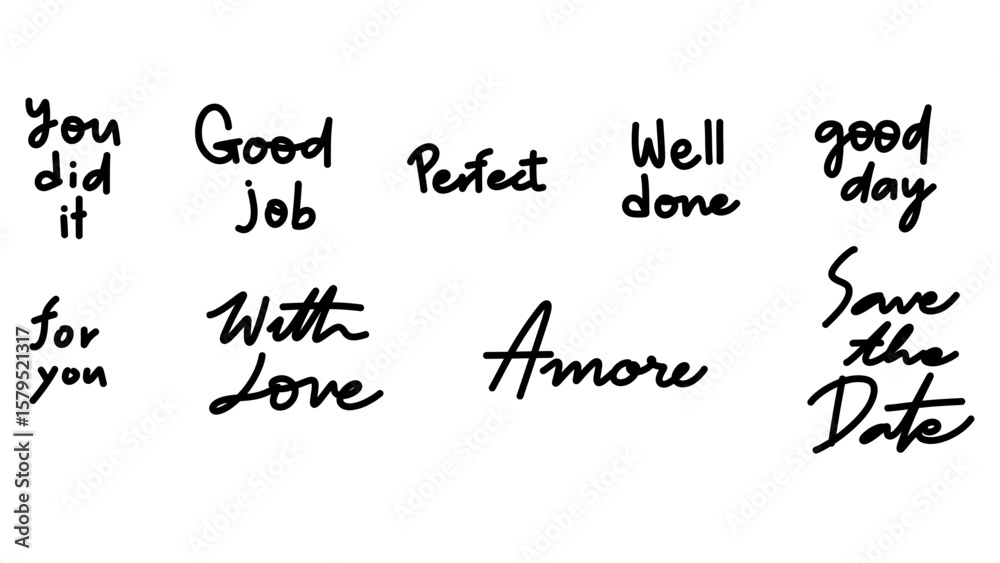 you
did
it
Good
job
Perfect
Well
done
good
day
for
you
With
Love
Amore
Save
the
Date
Adobe Stock | #1579521317